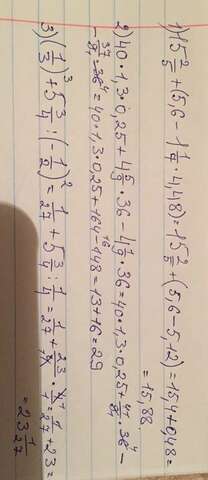 1) 15 2/5 + (5,6 - 1 1/4 · 4,48) = 15 2/5 + (5,6 - 5,12) = 15,4 + 0,48 =
= 15,88.
2) 40 · 1,3 · 0,25 + 4 5/9 · 36 - 4 1/9 · 36 = 40 · 1,3 · 0,25 + 41/9 · 36 -
- 37/9 · 36 = 40 · 1,3 · 0,25 + 164 - 148 = 13 + 16 = 29
3) (1/3)³ + 5 3/4 : (-1/2)² = 1/27 + 5 3/4 : 1/4 = 1/27 + 23/4 · 4/1 = 1/27 + 23 =
= 23 1/27